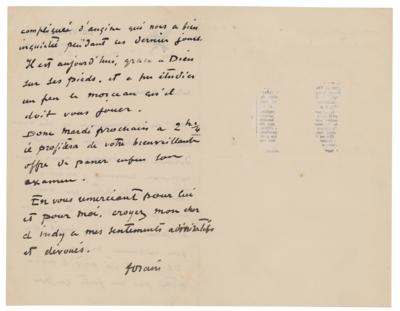 compliquée d'angine qui nous a bien
inquiété pendant ces dernier jours.
Il est aujourd'hui, grace a Dieu
sur ses pieds, et a pu étudier
un peu le morceau qu'il
doit vous jouer.
Donc Mardi prochain a 2 h
il profitera de votre bienveillante
offre de passer enfin son
examen.
En vous remerciant pour lui
et pour moi, croyez mon cher
d'indy a mes sentiments admiratifs
et dévoués.